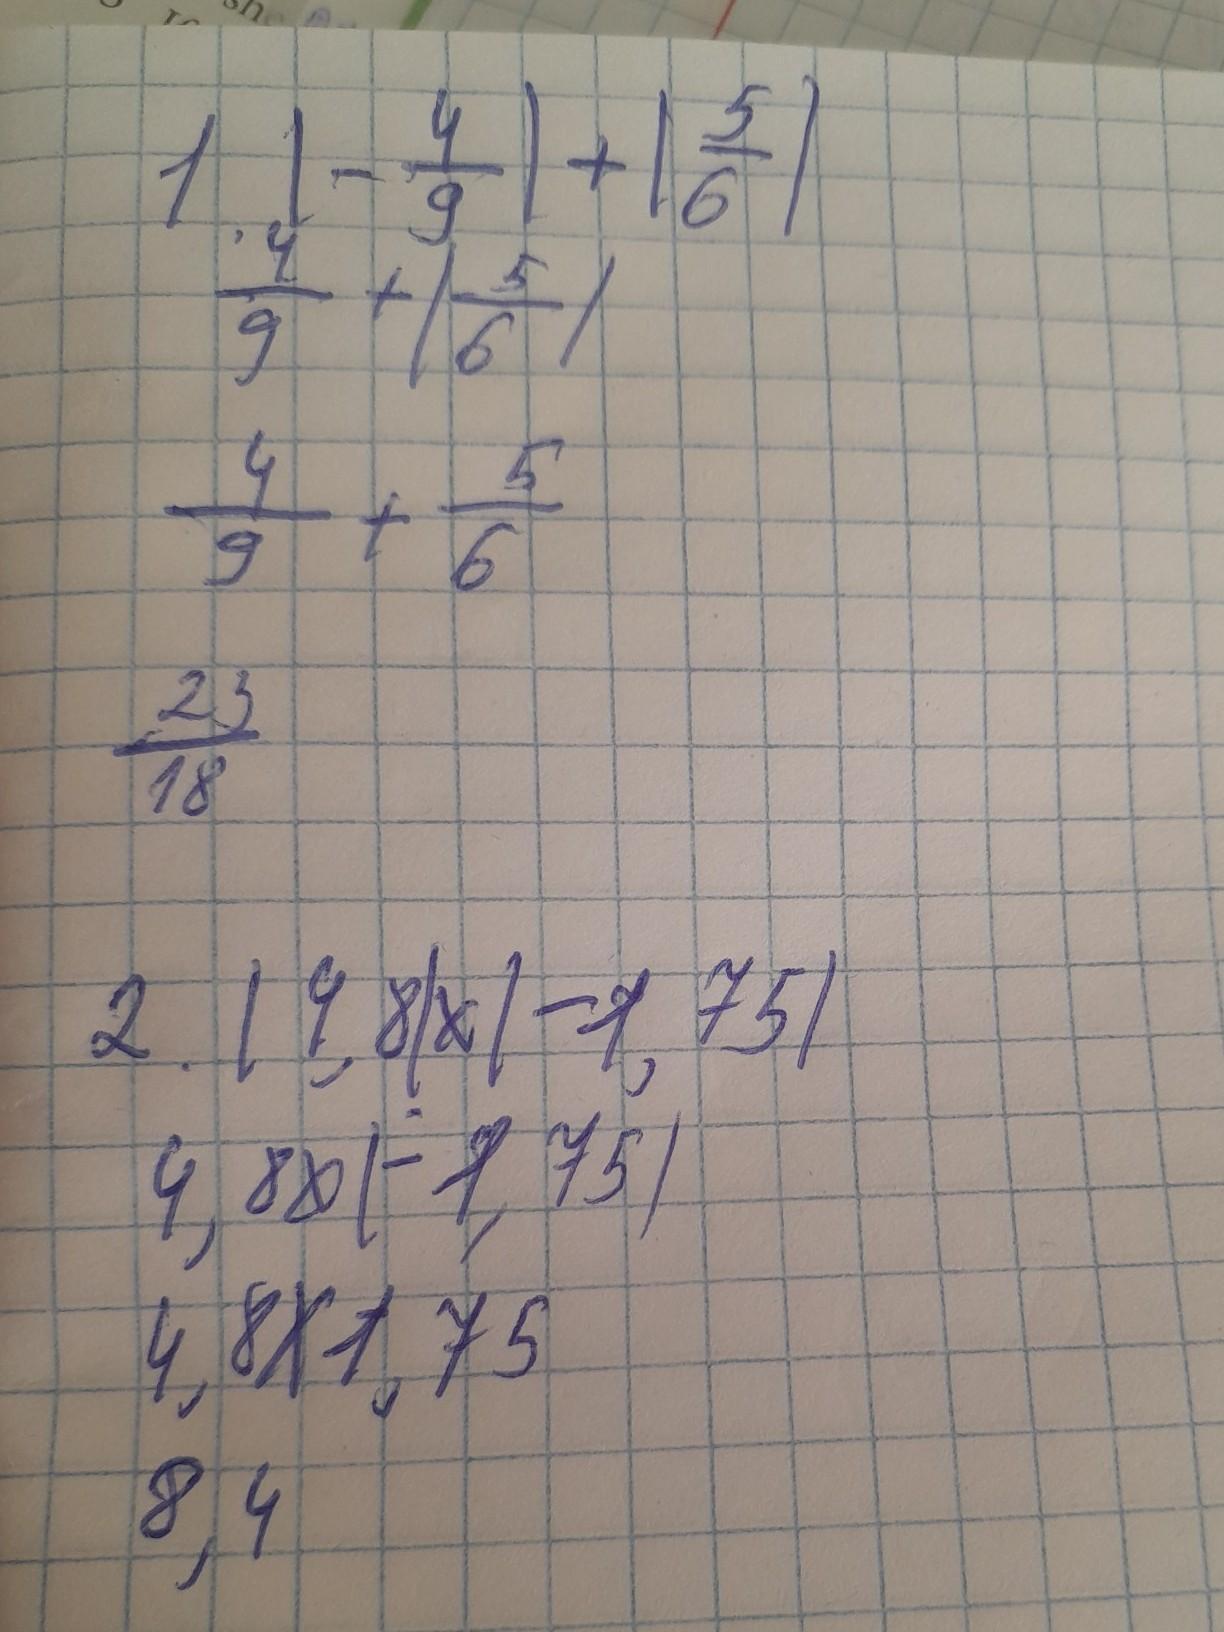 1. |-4/9| + |5/6|
4/9 + |5/6|
4/9 + 5/6
23/18
2. |4,8|x|-1,75|
4,8x|-1,75|
4,8x1,75
8,4